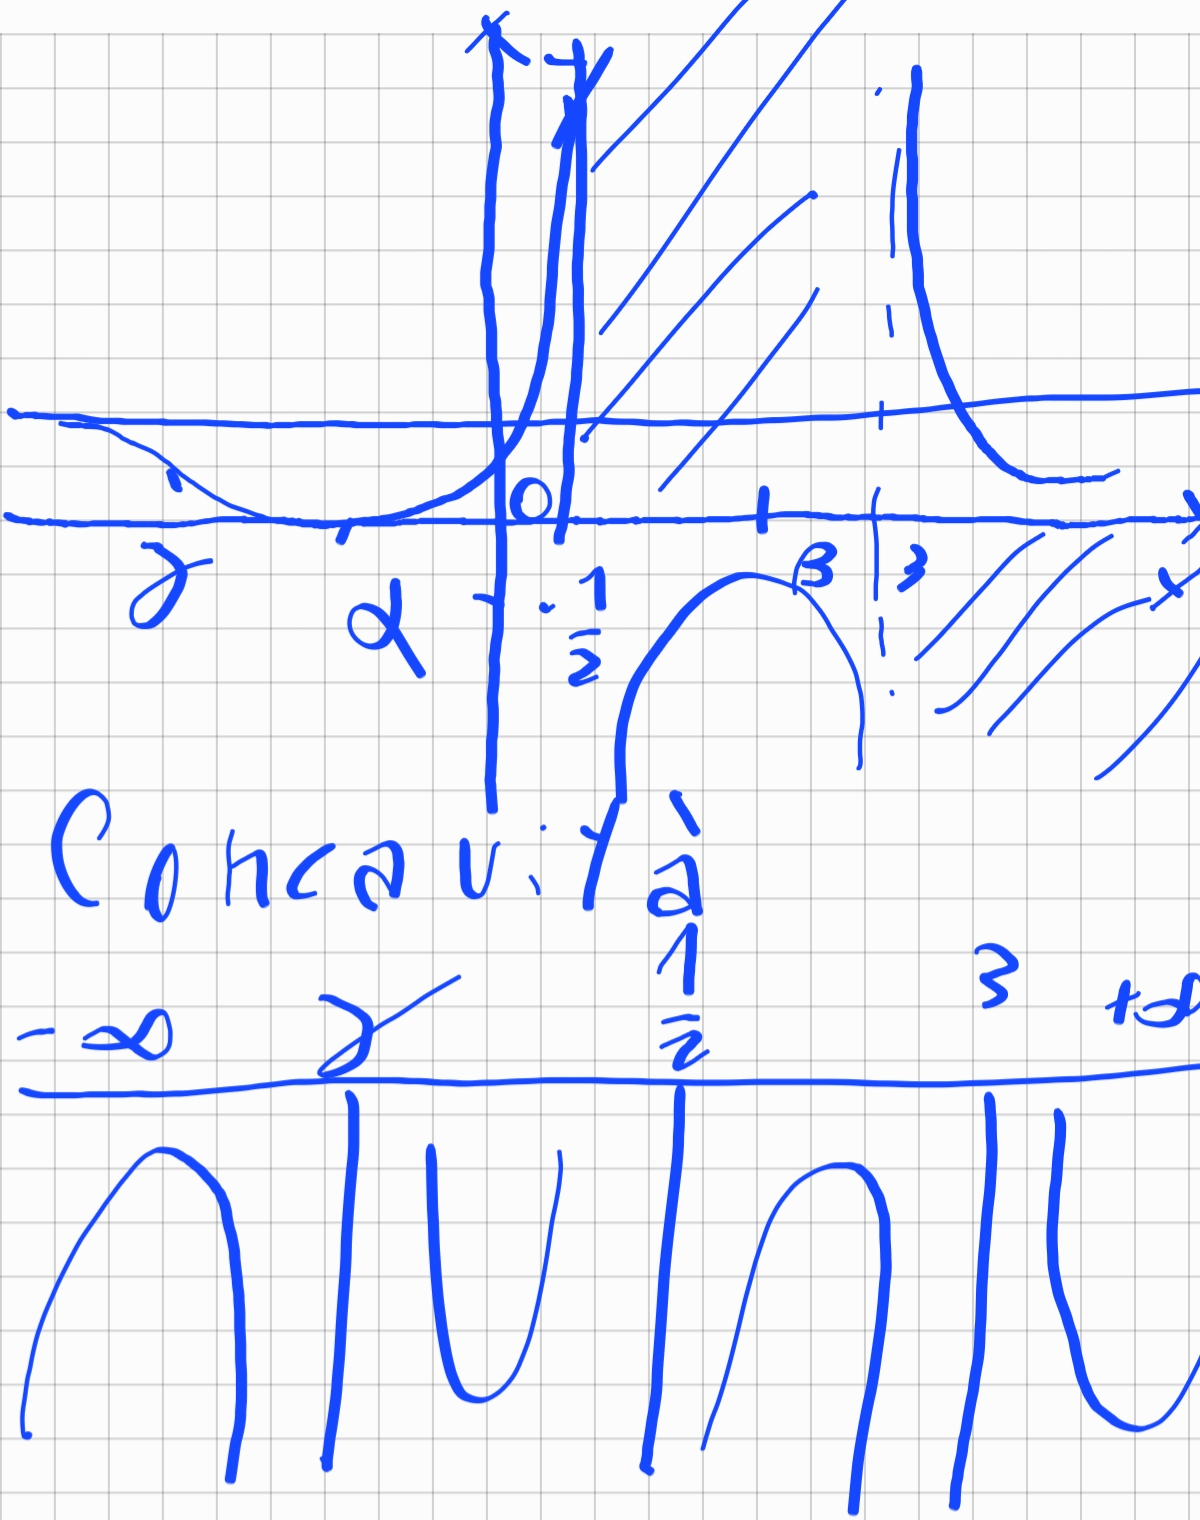 y
0
γ α 1/2 β 3 x
Concavità
-∞ γ 1/2 3 +∞